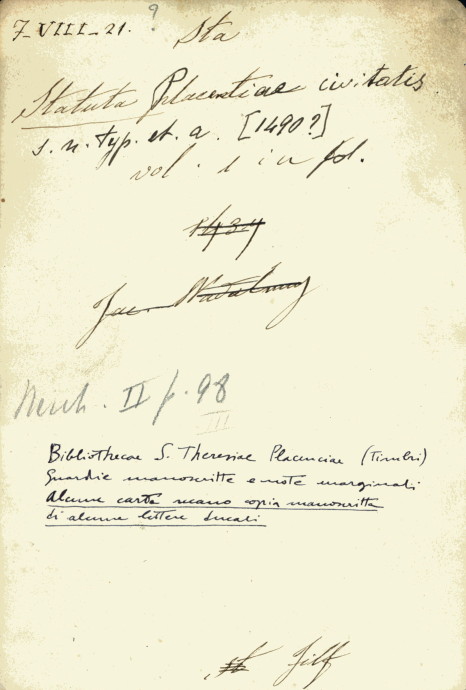 7-VIII-21. 9
Sta
Statuta Placentiae civitatis
s. n. typ. et. a. [1490?]
vol. 1 in fol.
1484
Jac.
II p. 98
III
Bibliothecae S. Theresiae Placenciae (Timbri)
Guardie manoscritte e note marginali
Alcune carte recano copia manoscritta
di alcune lettere ducali